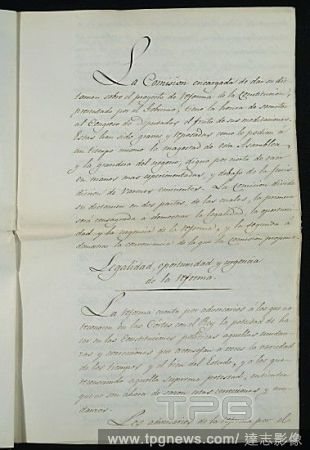 La Comision encargada de dar su dic-
tamen sobre el proyecto de reforma de la Constitucion,
presentado por el Gobierno, tiene la honra de someter
al Congreso de Diputados el fruto de sus meditaciones.
Estas han sido graves y reposadas como lo pedian á
un tiempo mismo la magestad de esta Asamblea
y la grandeza del negocio, digno por cierto de car
manos mas esperimentadas, y
de Varones eminentes. La Comision divide
su dictamen en dos partes, de las cuales, la primera
será consagrada á demostrar la legalidad, la oportuni-
dad, y la urgencia de la reforma, y la segunda á
demostrar la conveniencia de lo que la Comision propone.
Legalidad, oportunidad y urgencia
de la reforma.
La reforma cuenta por adversarios á los que no
reconocen en las Córtes con el Rey la potestad de ha-
cer en las Constituciones políticas aquellas mudan-
zas y correcciones que aconsejan á veces la variedad
de los tiempos y el bien del Estado, y á los que
reconociendo aquella suprema potestad, entienden
que no son ahora de sazon estas correcciones y mu-
danzas.
Los adversarios de la reforma por el
TPG
www.tpgnews.com/達志影像